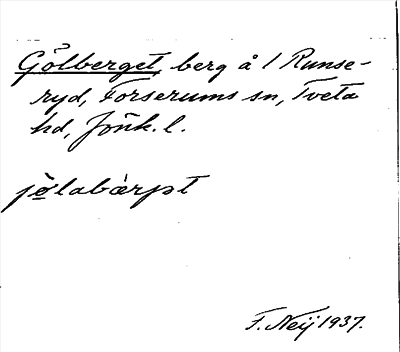 Gölberget, berg å 1 Runse-
ryd, Forserums sn, Tveta
hd, Jönk. l.
jö̀labærjət
F. Neij 1937.